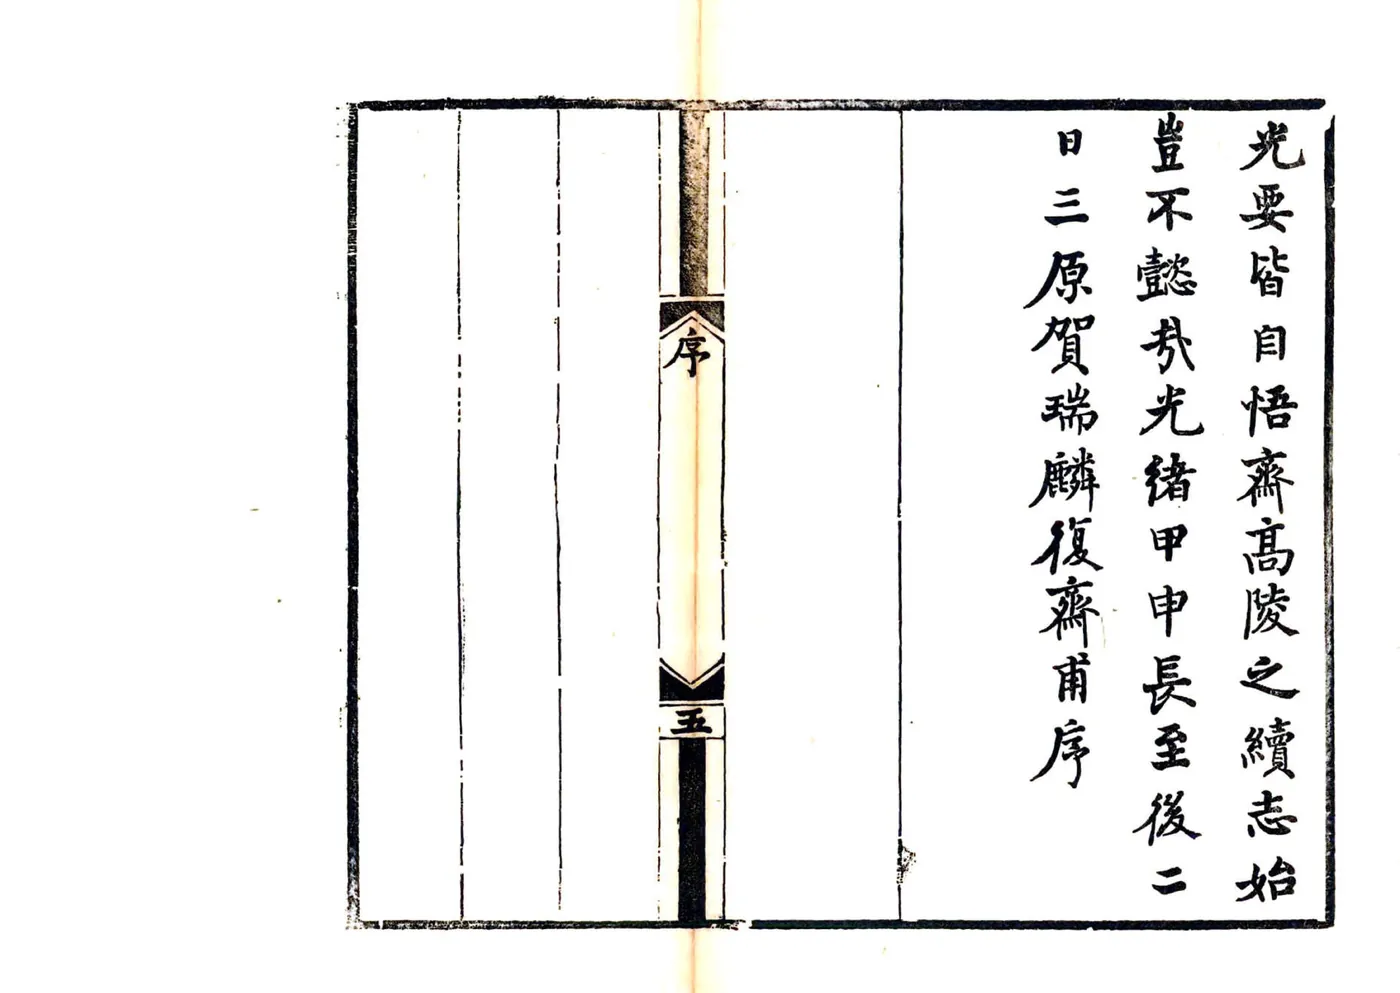 光要皆自悟齋高陵之續志始
豈不懿哉光緒甲申長至後二
日三原賀瑞麟復齋甫序
序
五